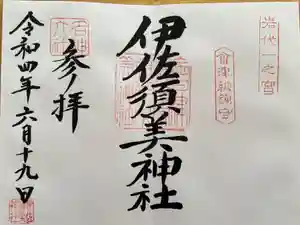 岩代一之宮
会津総鎮守
伊佐須美神社
参拝
令和四年六月十九日